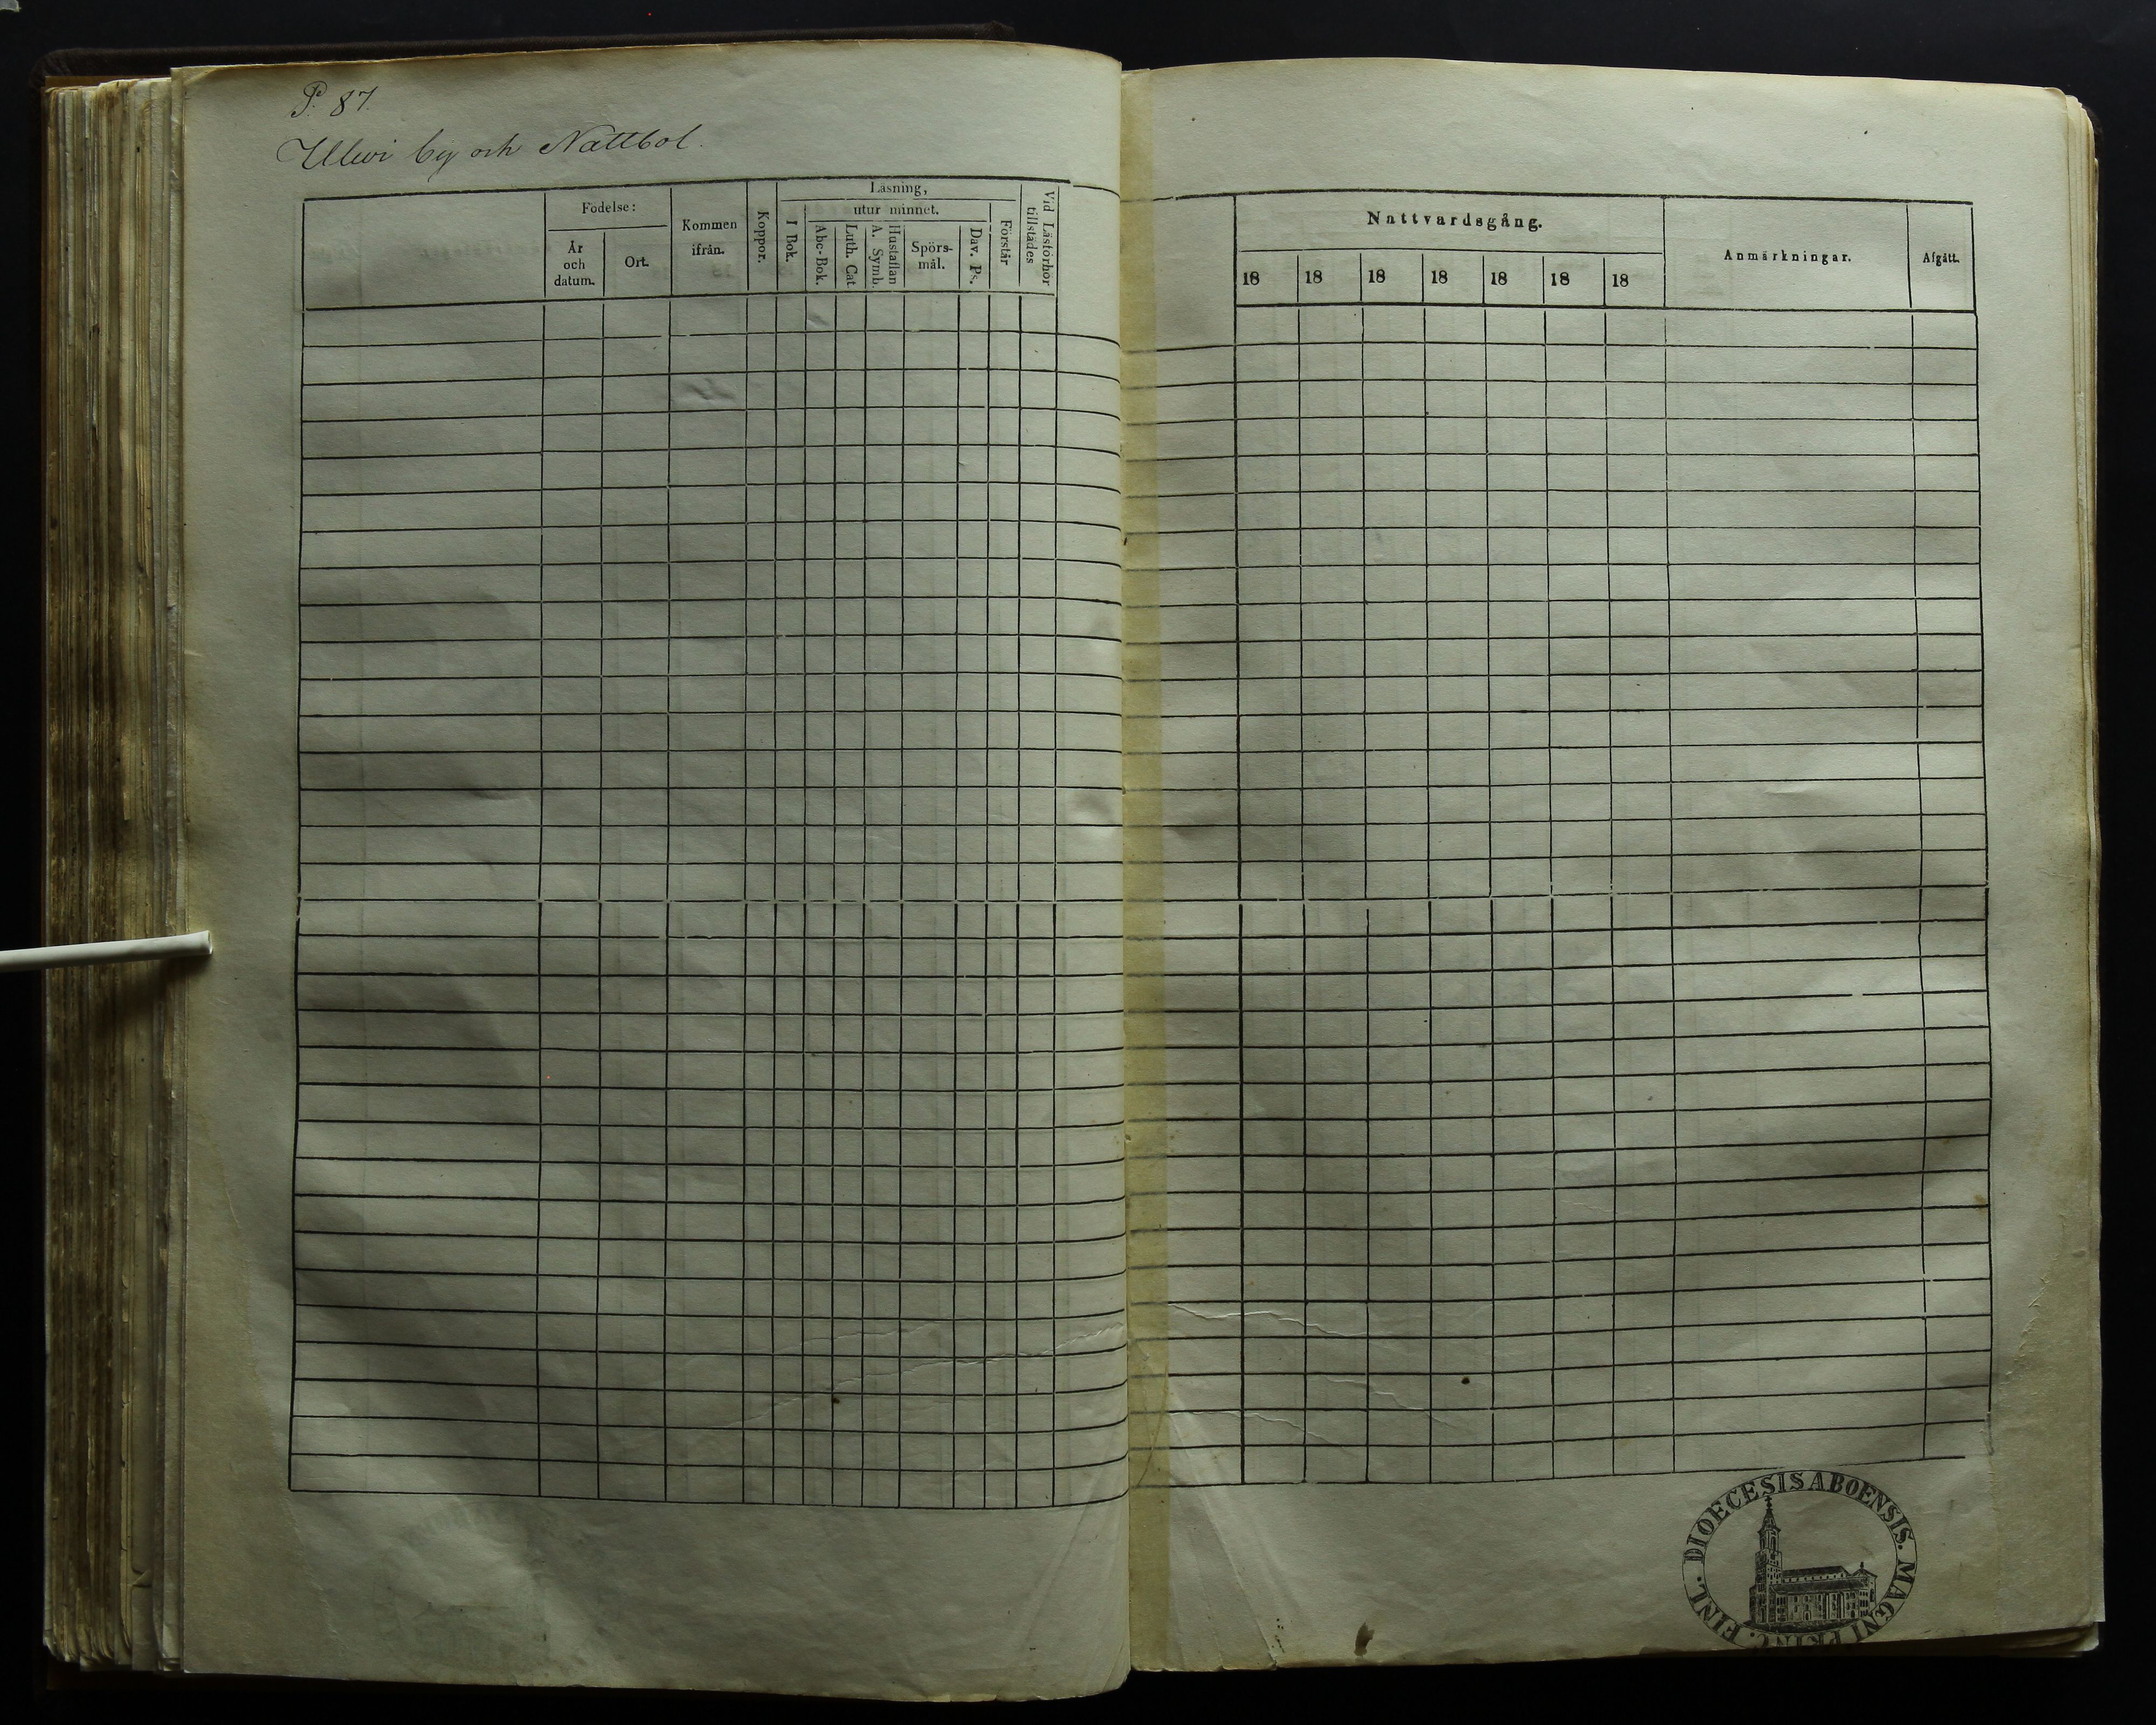 P. 87.
Ulluvi by och Nattbol.
Födelse:
År
och
datum.
Ort.
Kommen
ifrån.
Koppor.
Läsning,
utur minnet.
I Bok.
Abc-Bok.
Luth. Cat
A. Symb.
Hustaflan
Spörs-
mål.
Dav. Ps.
Förstår
Vid Läsförhör
tillstädes
Nattvardsgång.
18 18 18 18 18 18 18
Anmärkningar.
Afgått.
DIOECESIS ABOENSIS. MAGNI PRINC. FINL.